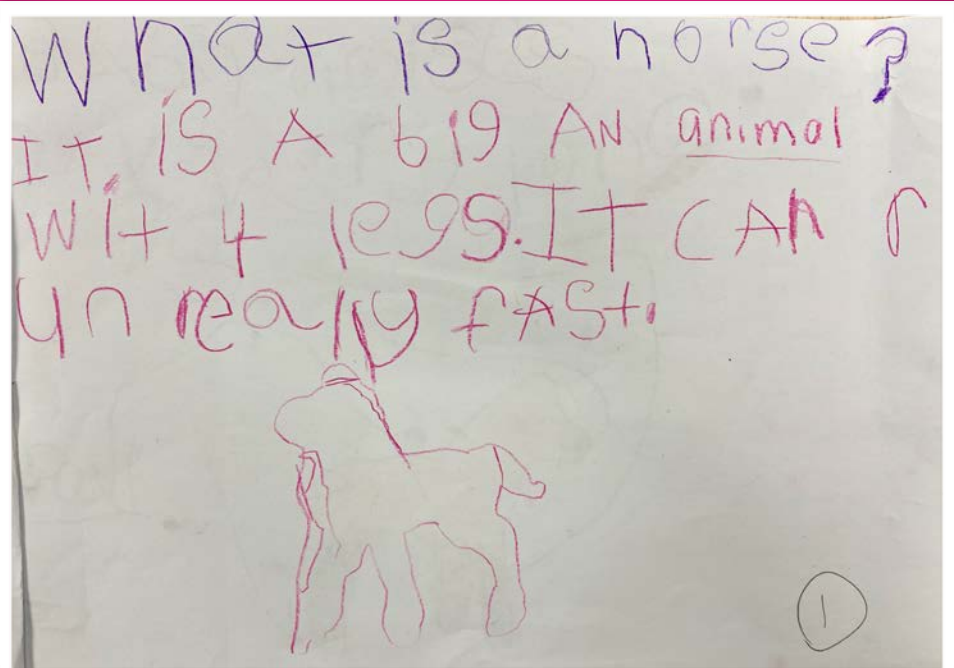 What is a horse?
IT. iS A big AN animal
Wit 4 legs. IT CAN r
un really fASt.
1